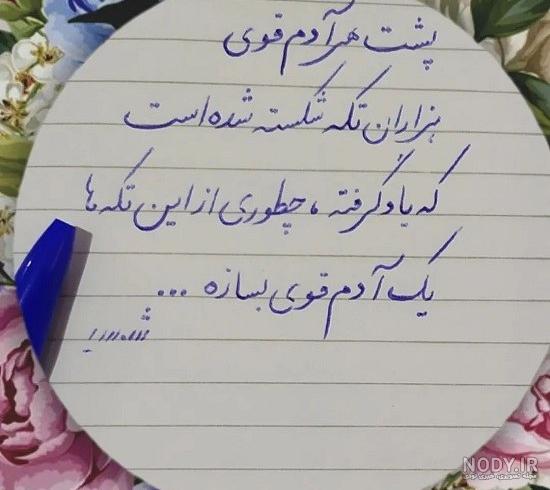 پشت هر آدم قوی
هزاران تکه شکسته شده است
که یاد گرفته، چطوری از این تکه ها
یک آدم قوی بسازه ...
NODY.IR
مجله تصویری خبری نودی